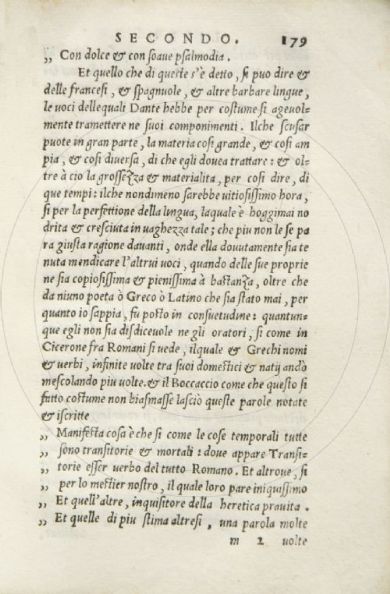 SECONDO. 179
„ Con dolce & con soaue psalmodia.
Et quello che di queste s'è detto, si puo dire &
delle francesi, & spagnuole, & altre barbare lingue,
le uoci delle quali Dante hebbe per costume sì ageuol-
mente tramettere ne suoi componimenti. Ilche scusar
puote in gran parte, la materia così grande, & così am
pia, & così diuersa, di che egli douea trattare: & ol-
tre à cio la grossezza & materialita, per così dire, di
que tempi: ilche nondimeno sarebbe uitiosissimo hora,
sì per la perfettione della lingua, laquale è hoggimai no
drita & cresciuta in uaghezza tale; che piu non le se pa
ra giusta ragione dauanti, onde ella douutamente sia te
nuta mendicare l'altrui uoci, quando delle sue proprie
ne sia copiosissima & pienissima à bastanza, oltre che
da niuno poeta ò Greco ò Latino che sia stato mai, per
quanto io sappia, fu posto in consuetudine: quantun-
que egli non sia disdiceuole ne gli oratori, sì come in
Cicerone fra Romani si uede, ilquale & Grechi nomi
& uerbi, infinite uolte tra suoi domestici & natij andò
mescolando piu uolte. & il Boccaccio come che questo sì
fatto costume non biasmasse lasciò queste parole notate
& iscritte
„ Manifesta cosa è che sì come le cose temporali tutte
„ sono transitorie & mortali: doue appare Transi-
„ torie esser uerbo del tutto Romano. Et altroue, sì
„ per lo mestier nostro, il quale loro pare iniquissimo
„ Et quell'altre, inquisitore della heretica prauita.
„ Et quelle di piu stima altresi, una parola molte
m 2 uolte